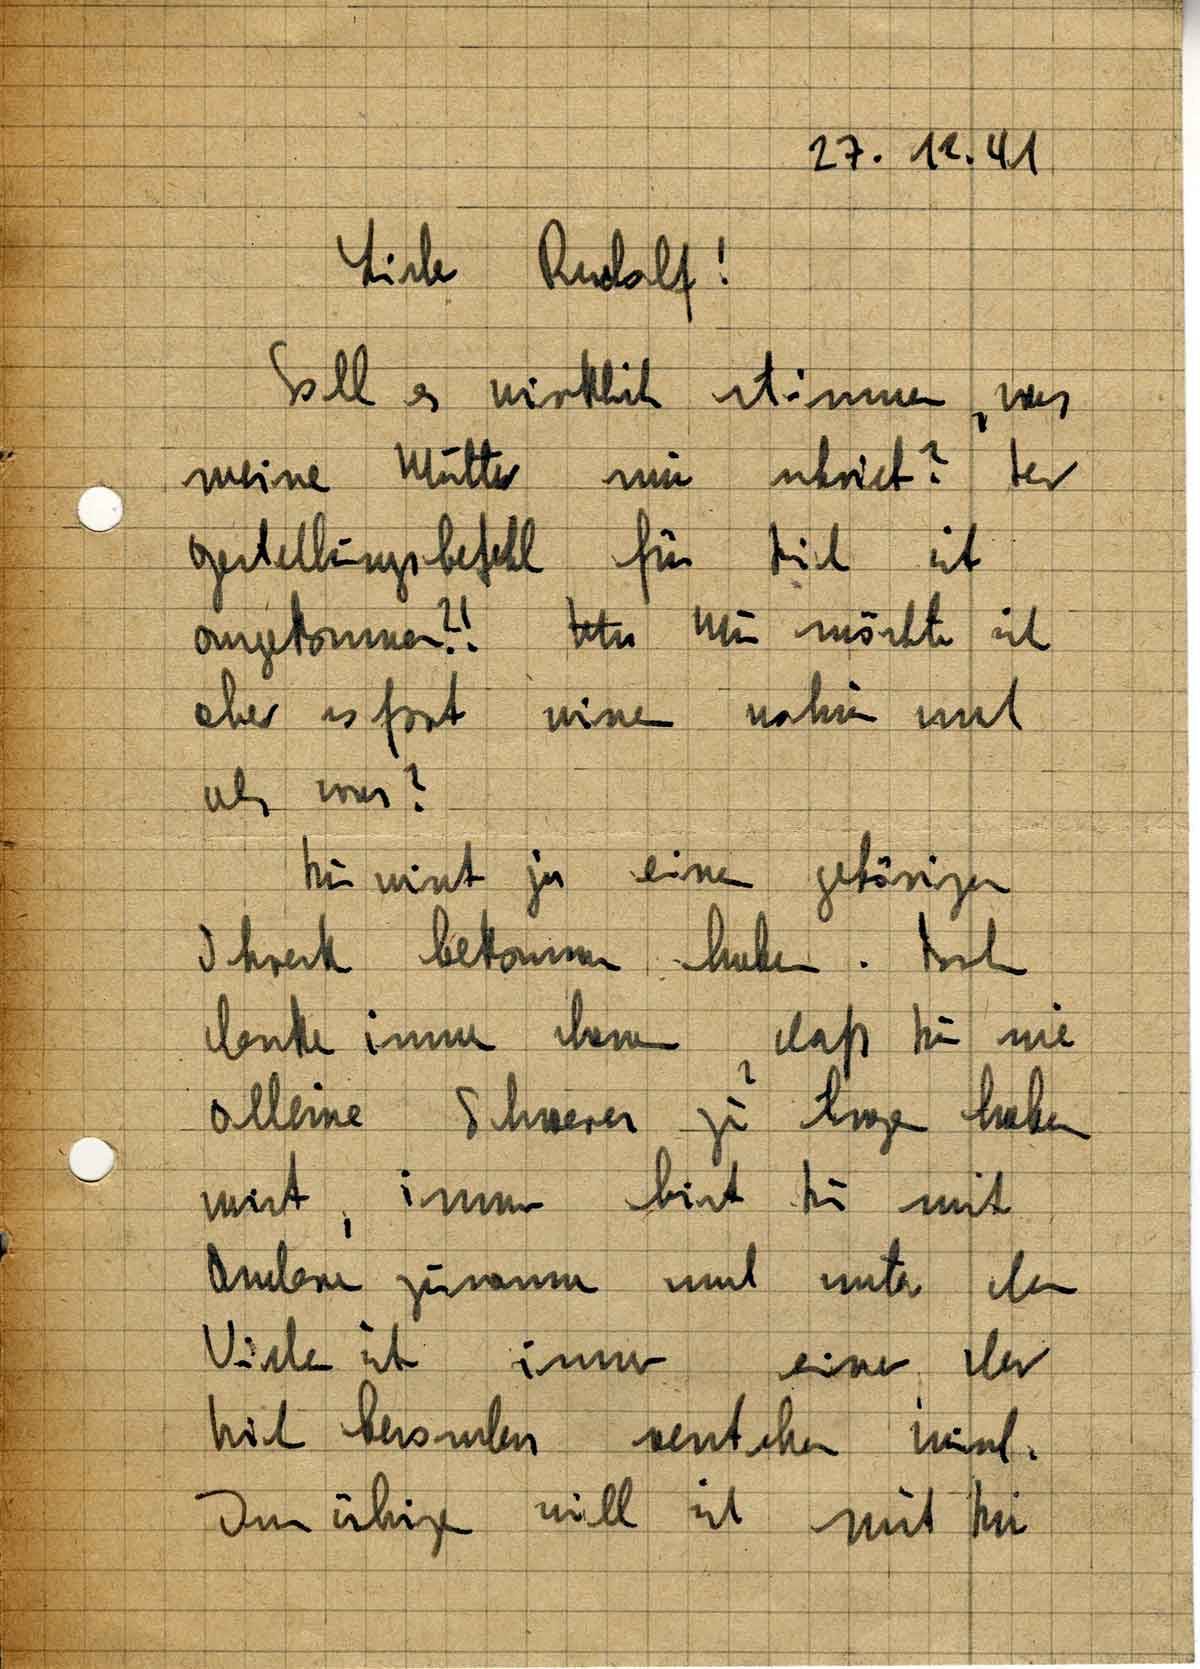 27. 12. 41
Lieber Rudolf!
Soll es wirklich stimmen, was
meine Mutter mir schrieb? Der
Gestellungsbefehl für Dich ist
angekommen?! Nun möchte ich
aber sofort wissen wohin und
als was?
Du wirst ja einen gehörigen
Schreck bekommen haben. Doch
denke immer daran, daß Du nie
alleine Schweres zu tragen haben
wirst, immer bist Du mit
Anderen zusammen und unter den
Vielen ist immer einer, der
Dich besonders verstehen wird.
Im übrigen will ich mit Dir